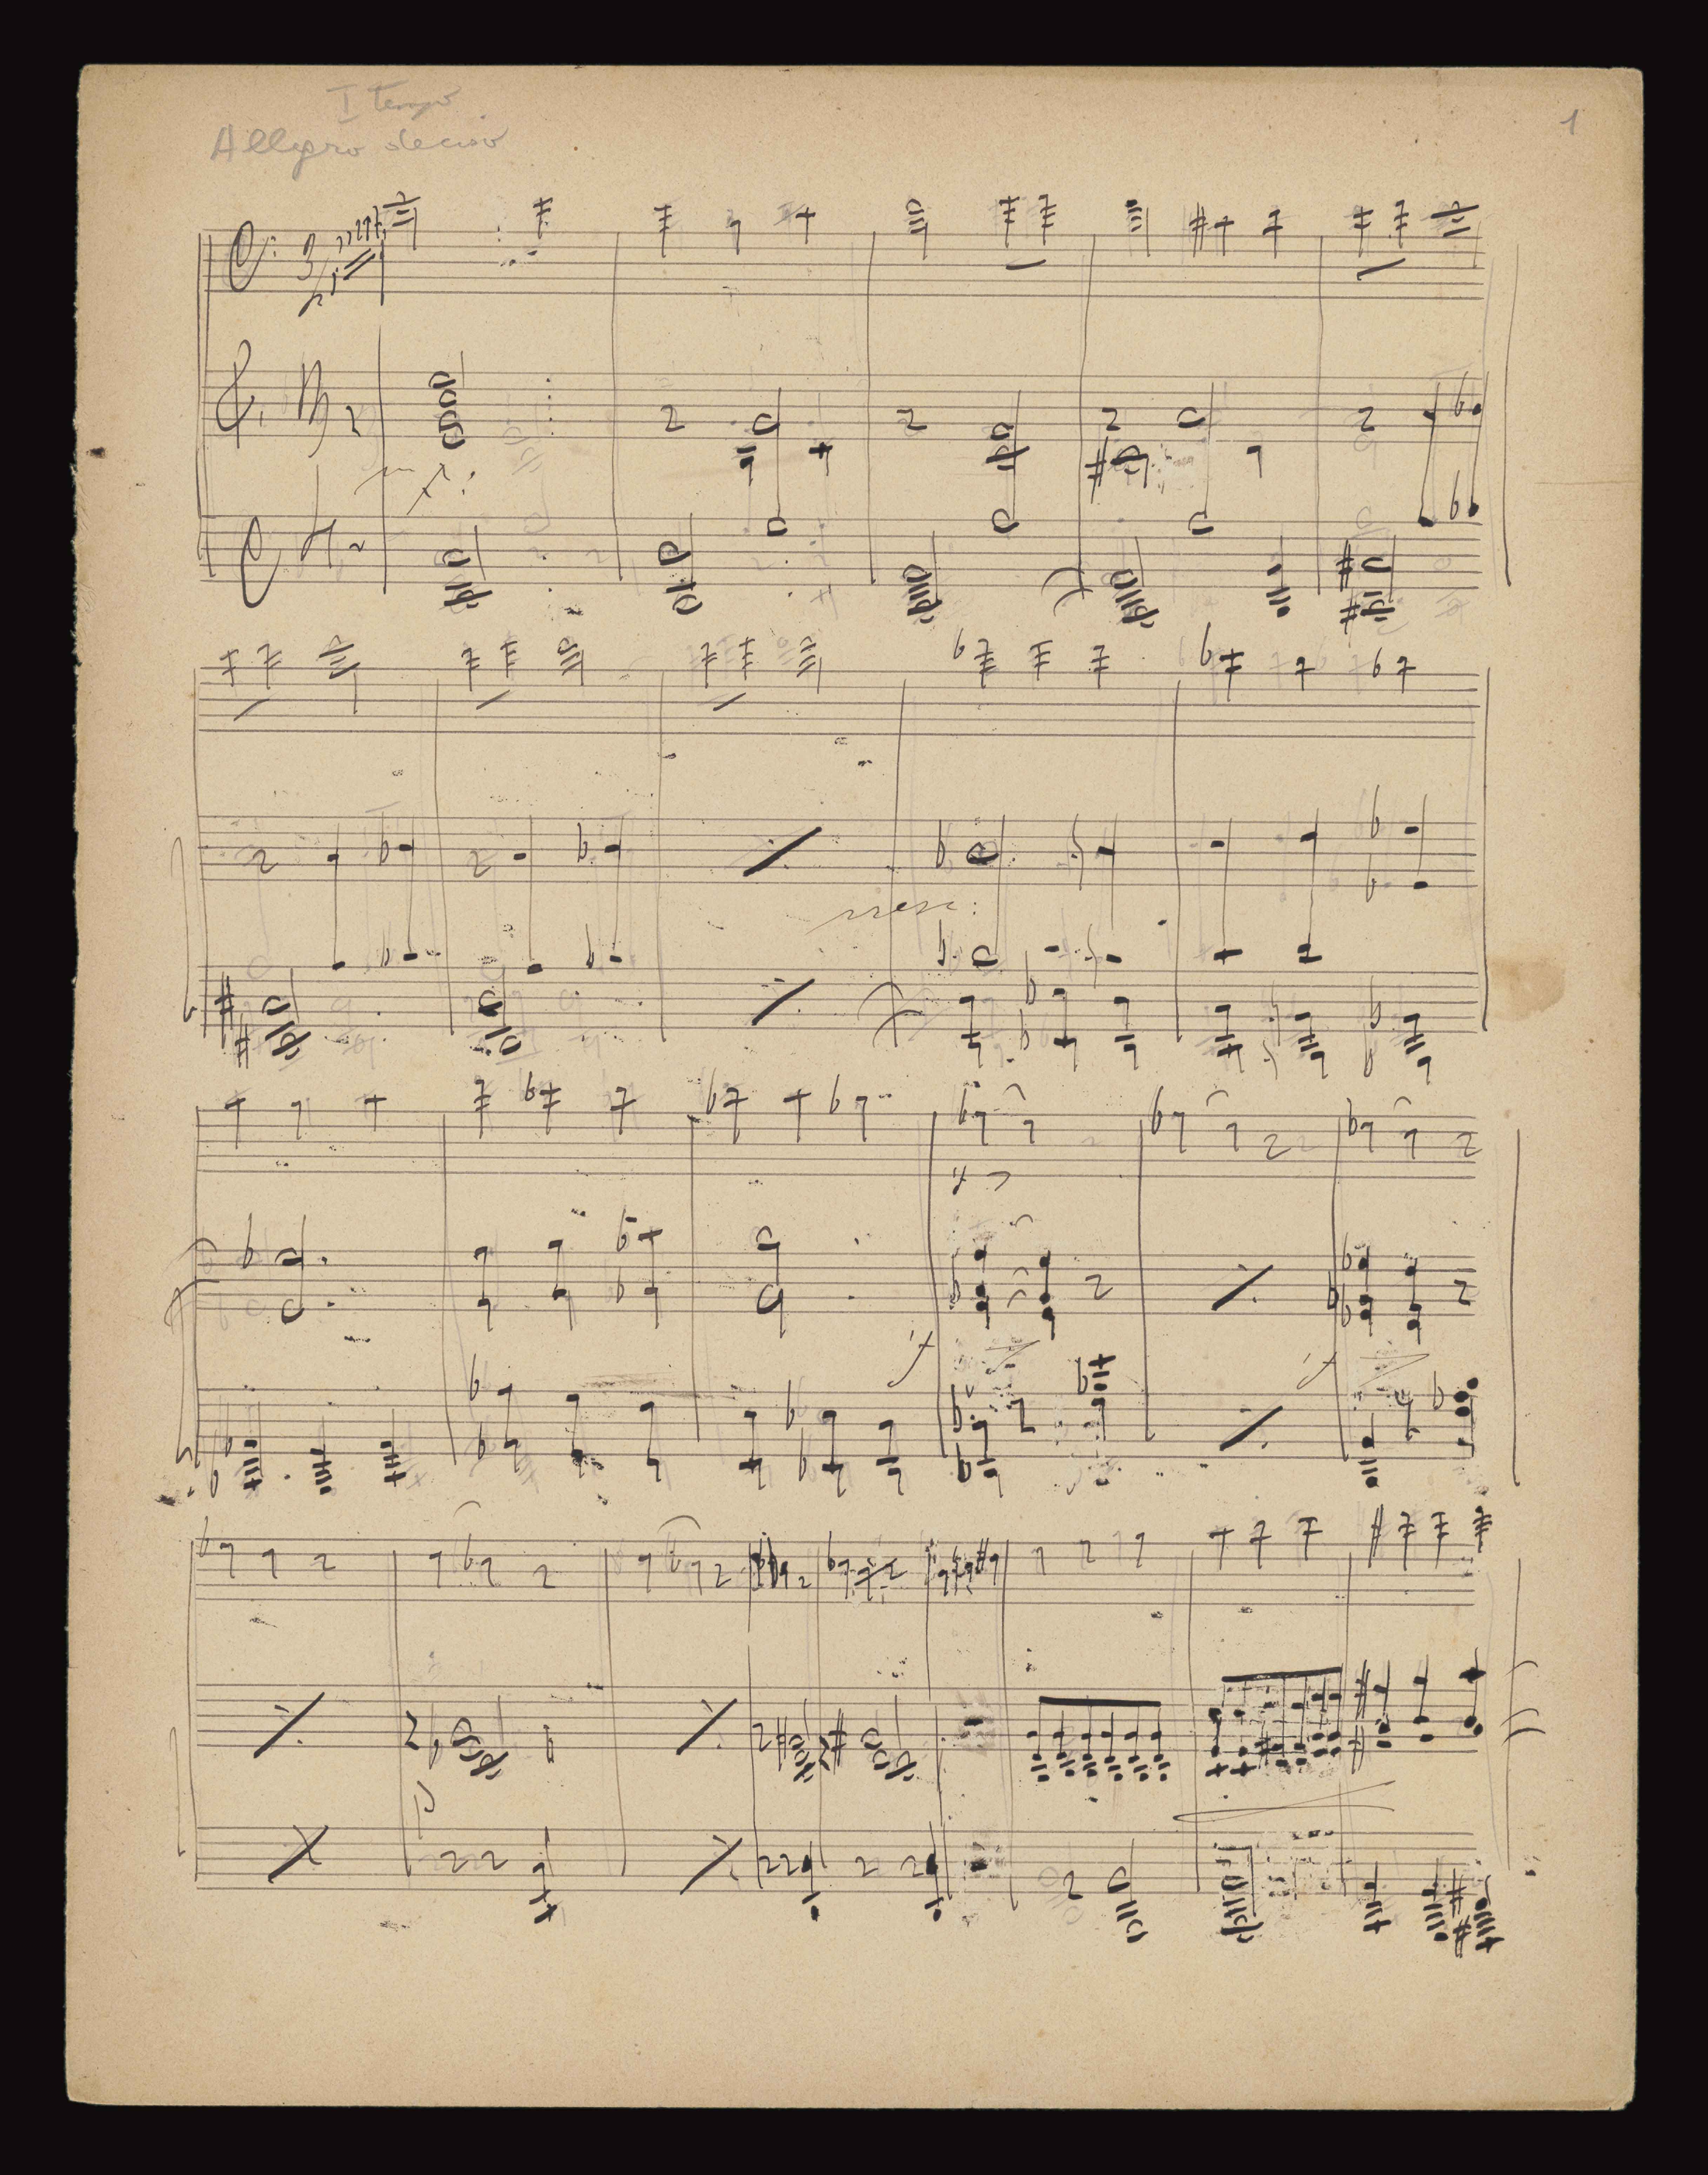 I Tempo
Allegro deciso
1
mf:
cresc:
f
f
p